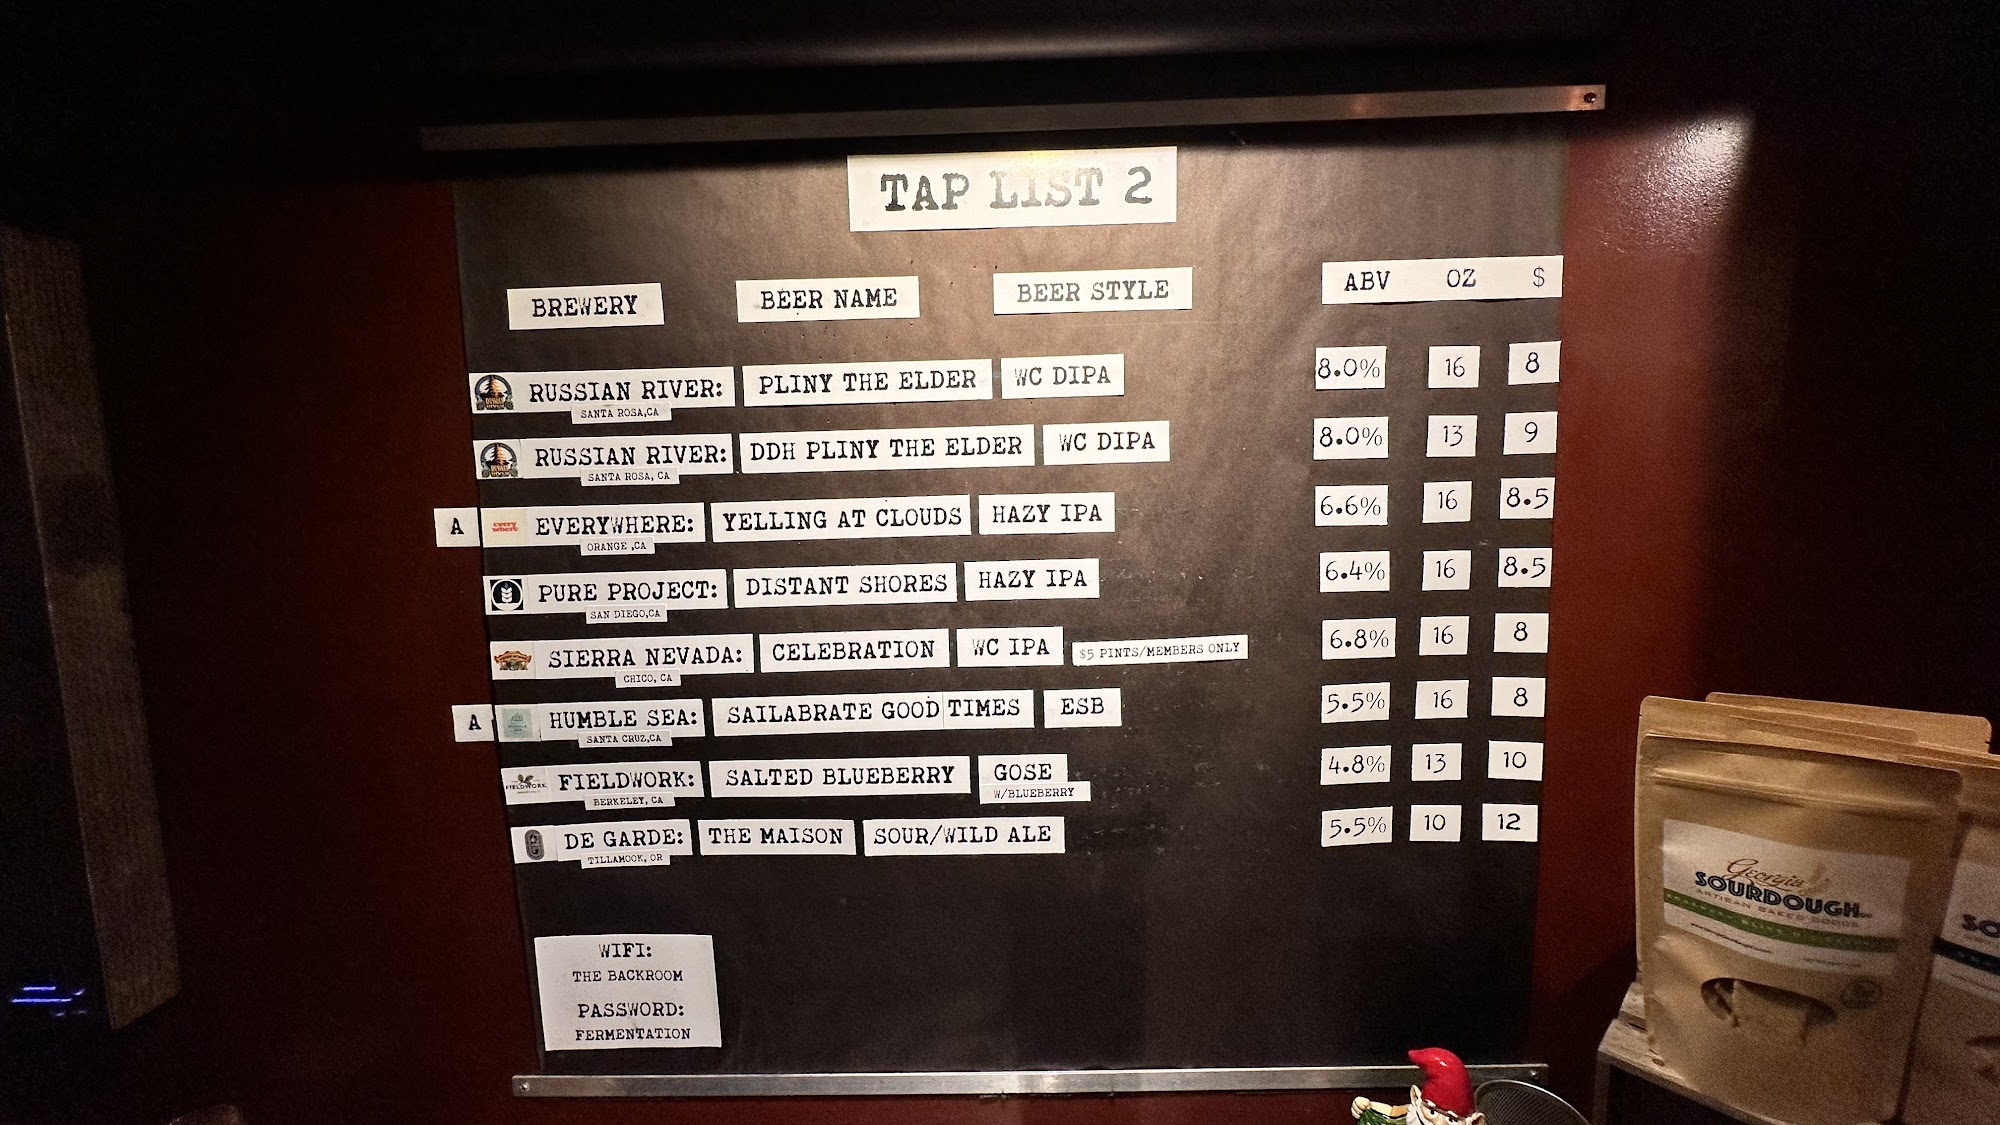 TAP LIST 2
BREWERY BEER NAME BEER STYLE ABV OZ $
RUSSIAN RIVER: PLINY THE ELDER WC DIPA 8.0% 16 8
SANTA ROSA,CA
RUSSIAN RIVER: DDH PLINY THE ELDER WC DIPA 8.0% 13 9
SANTA ROSA, CA
A every where EVERYWHERE: YELLING AT CLOUDS HAZY IPA 6.6% 16 8.5
ORANGE ,CA
PURE PROJECT: DISTANT SHORES HAZY IPA 6.4% 16 8.5
SAN DIEGO,CA
SIERRA NEVADA: CELEBRATION WC IPA $5 PINTS/MEMBERS ONLY 6.8% 16 8
CHICO, CA
A HUMBLE SEA: SAILABRATE GOOD TIMES ESB 5.5% 16 8
SANTA CRUZ,CA
FIELDWORK FIELDWORK: SALTED BLUEBERRY GOSE 4.8% 13 10
BERKELEY, CA W/BLUEBERRY
DE GARDE: THE MAISON SOUR/WILD ALE 5.5% 10 12
TILLAMOOK, OR
WIFI:
THE BACKROOM
PASSWORD:
FERMENTATION
Georgia
SOURDOUGH
ARTISAN BAKED GOODS
SO